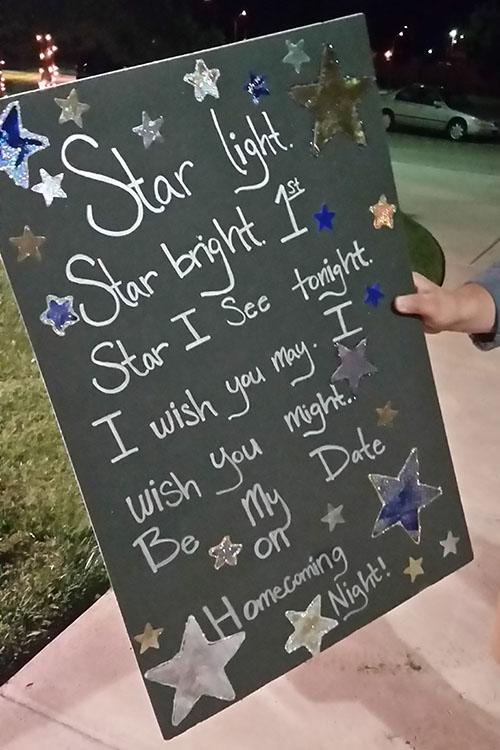 Star light.
Star bright. 1st
Star I See tonight.
I wish you may. I
wish you might.
Be My Date
on
Homecoming
Night!